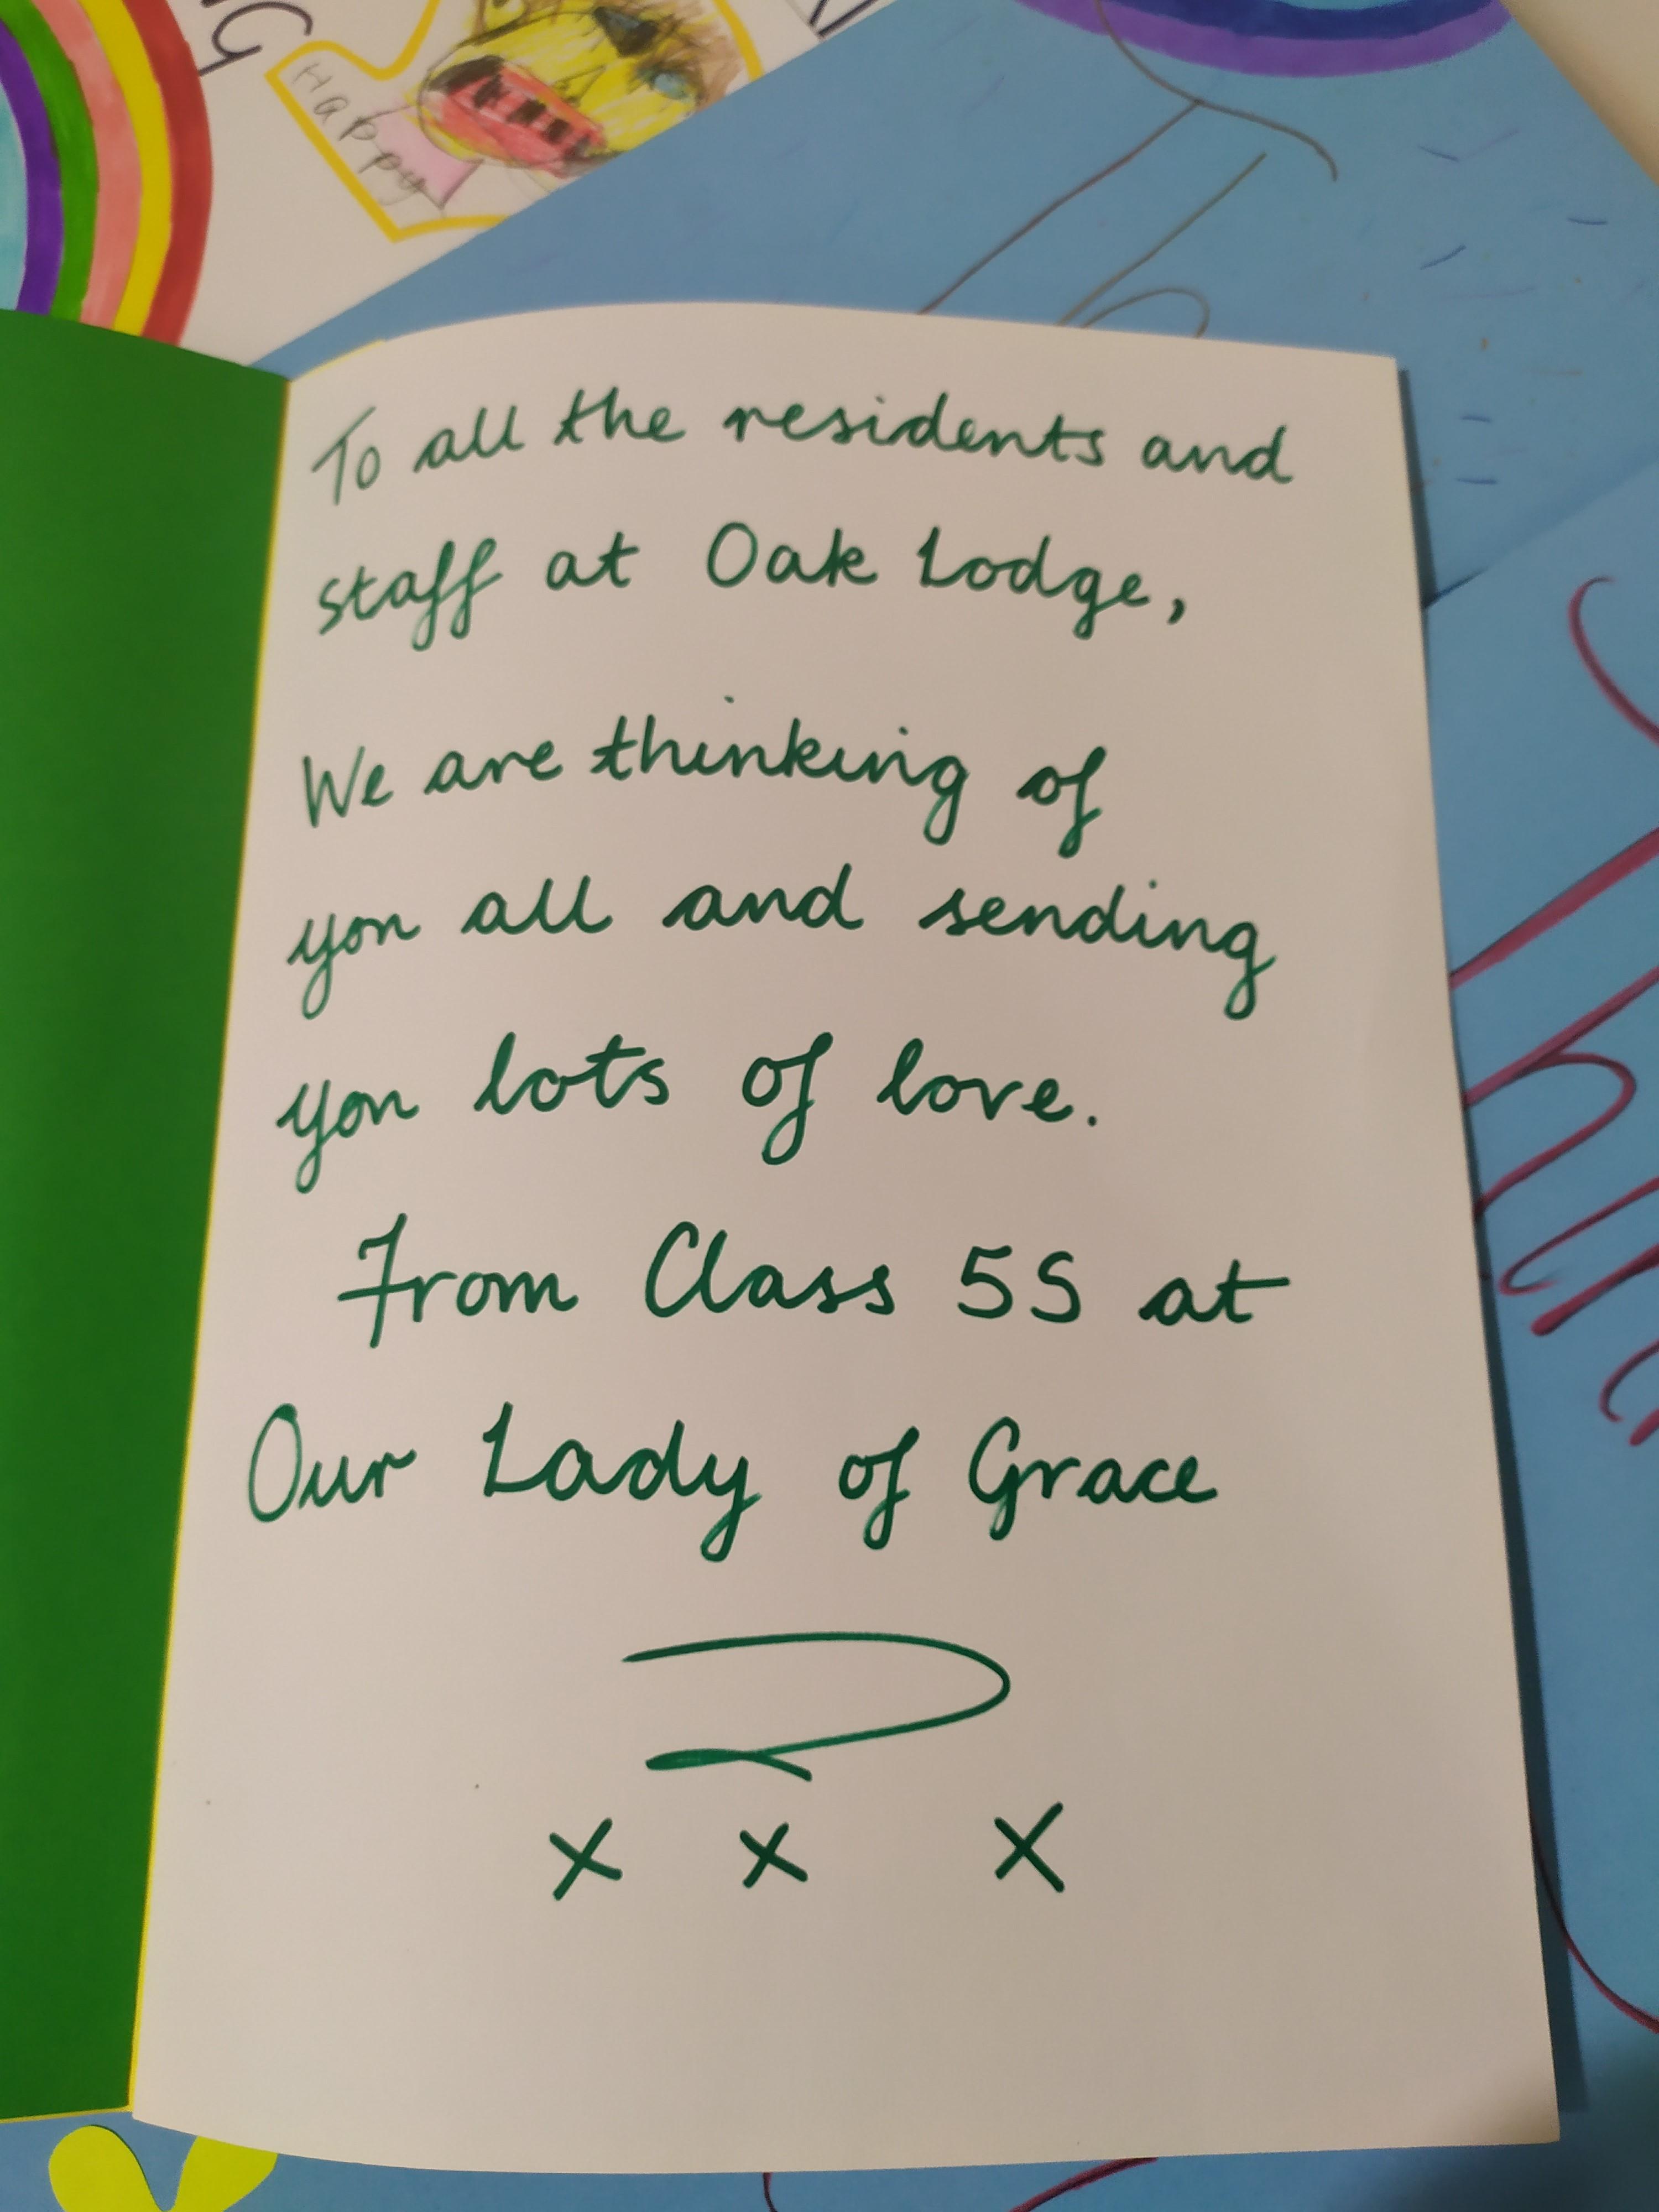 Happy
To all the residents and
staff at Oak Lodge,
We are thinking of
you all and sending
you lots of love.
From Class 5S at
Our Lady of Grace
x x x